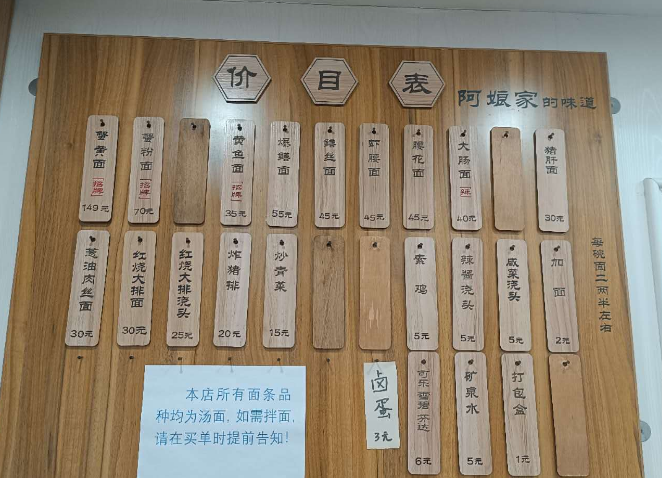 价目表
阿娘家的味道
蟹黄面 招牌 149元
蟹粉面 招牌 70元
黄鱼面 招牌 35元
爆鳝面 55元
鳝丝面 45元
虾腰面 45元
腰花面 45元
大肠面 40元
猪肝面 30元
葱油肉丝面 30元
红烧大排面 30元
红烧大排浇头 25元
炸猪排 20元
炒青菜 15元
素鸡 5元
辣酱浇头 5元
咸菜浇头 5元
加面 2元
每碗面二两半左右
本店所有面条品
种均为汤面,如需拌面,
请在买单时提前告知!
卤蛋 3元
可乐 雪碧 芬达 6元
矿泉水 5元
打包盒 1元